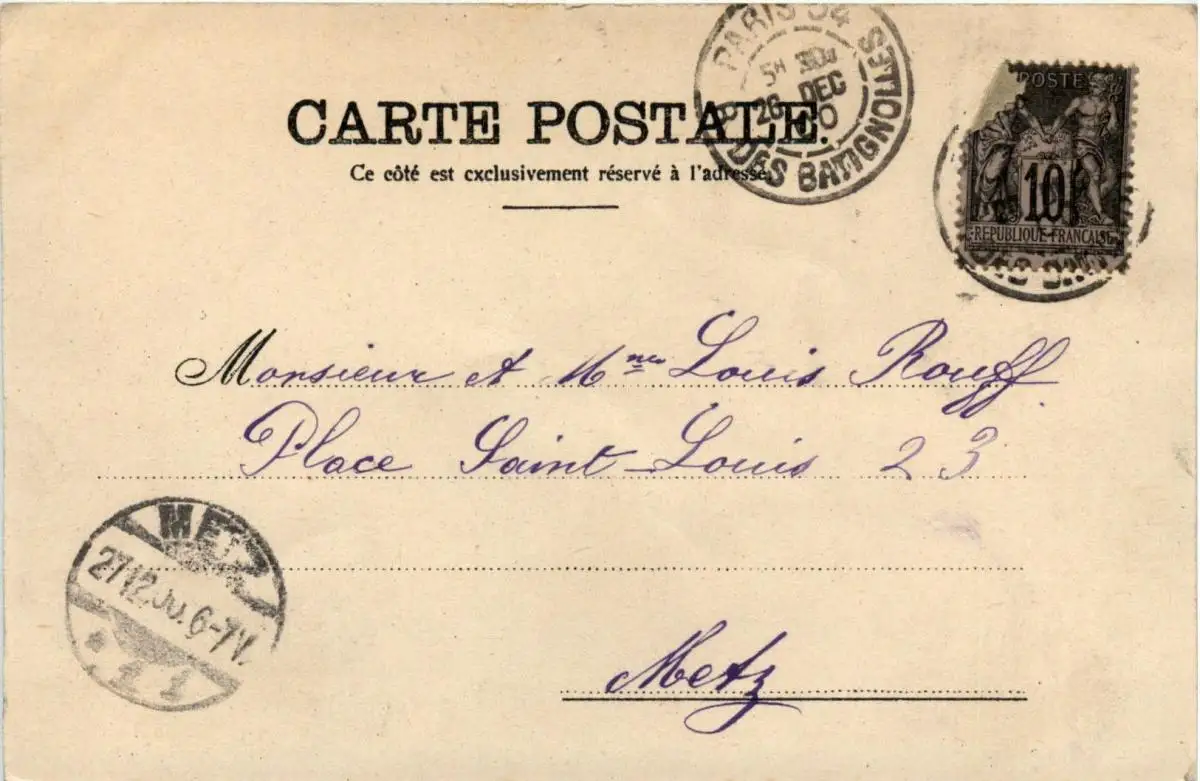 CARTE POSTALE.
Ce côté est exclusivement réservé à l'adresse.
PARIS 54
DES BATIGNOLLES
5H 30
26 DEC
00
POSTES
10
REPUBLIQUE FRANCAISE
Monsieur et Mme Louis Rouff
Place Saint-Louis 23
Metz
METZ
27 12.00. 6-7V.